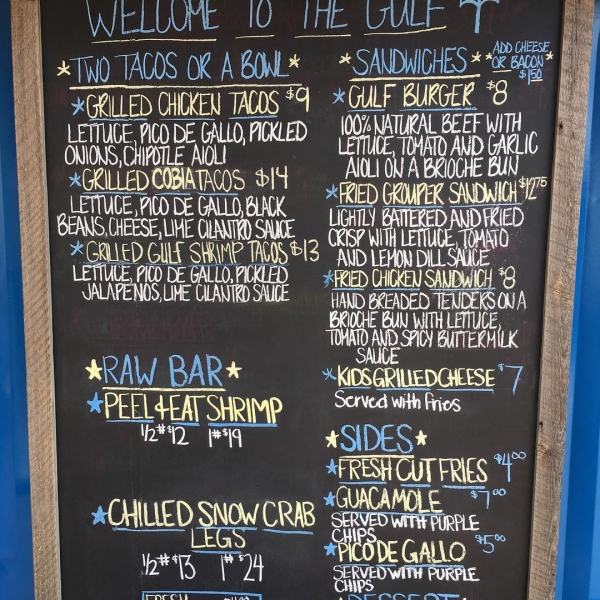 WELCOME TO THE GULF
TWO TACOS OR A BOWL
GRILLED CHICKEN TACOS $9
LETTUCE, PICO DE GALLO, PICKLED
ONIONS, CHIPOTLE AIOLI
GRILLED COBIA TACOS $14
LETTUCE, PICO DE GALLO, BLACK
BEANS, CHEESE, LIME CILANTRO SAUCE
GRILLED GULF SHRIMP TACOS $13
LETTUCE, PICO DE GALLO, PICKLED
JALAPENOS, LIME CILANTRO SAUCE
RAW BAR
PEEL & EAT SHRIMP
1/2# $12 1# $19
CHILLED SNOW CRAB
LEGS
1/2# $13 1# $24
FRESH
SANDWICHES
ADD CHEESE
OR BACON
$1.50
GULF BURGER $8
100% NATURAL BEEF WITH
LETTUCE, TOMATO AND GARLIC
AIOLI ON A BRIOCHE BUN
FRIED GROUPER SANDWICH $12.75
LIGHTLY BATTERED AND FRIED
CRISP WITH LETTUCE, TOMATO
AND LEMON DILL SAUCE
FRIED CHICKEN SANDWICH $8
HAND BREADED TENDERS ON A
BRIOCHE BUN WITH LETTUCE,
TOMATO AND SPICY BUTTERMILK
SAUCE
KIDS GRILLED CHEESE $7
Served with fries
SIDES
FRESH CUT FRIES $4.00
GUACAMOLE $7.00
SERVED WITH PURPLE
CHIPS
PICO DE GALLO $5.00
SERVED WITH PURPLE
CHIPS
DESSERT